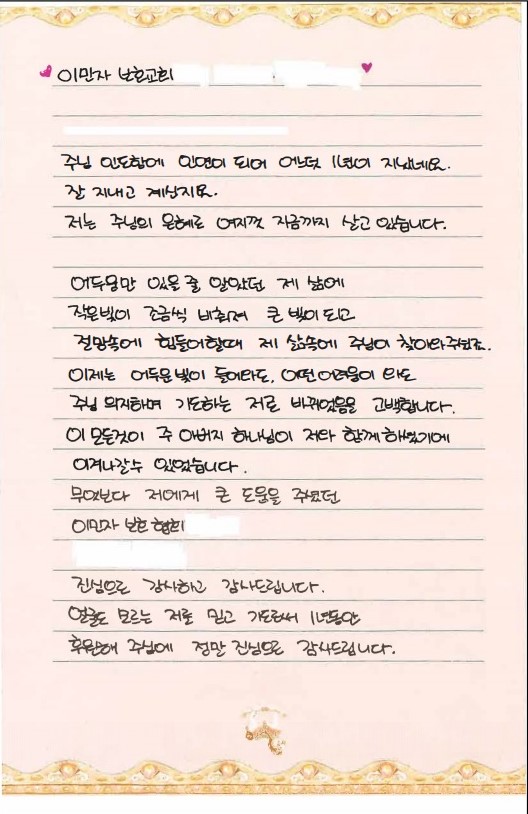 이민자 보호교회
주님 인도함에 인연이 되어 어느덧 1년이 지났네요.
잘 지내고 계신지요.
저는 주님의 은혜로 여지껏 지금까지 살고 있습니다.
어두움만 있을 줄 알았던 제 삶에
작은빛이 조금씩 비춰져 큰 빛이 되고
절망속에 힘들어할때 제 삶속에 주님이 찾아와주셨죠.
이제는 어두운 빛이 들어와도, 어떤 어려움이 와도
주님 의지하며 기도하는 저로 바뀌었음을 고백합니다.
이 모든것이 주 아버지 하나님이 저와 함께 하셨기에
이겨나갈수 있었습니다.
무엇보다 저에게 큰 도움을 주셨던
이민자 보호 협회
진심으로 감사하고 감사드립니다.
얼굴도 모르는 저를 믿고 기도로써 1년동안
후원해 주심에 정말 진심으로 감사드립니다.